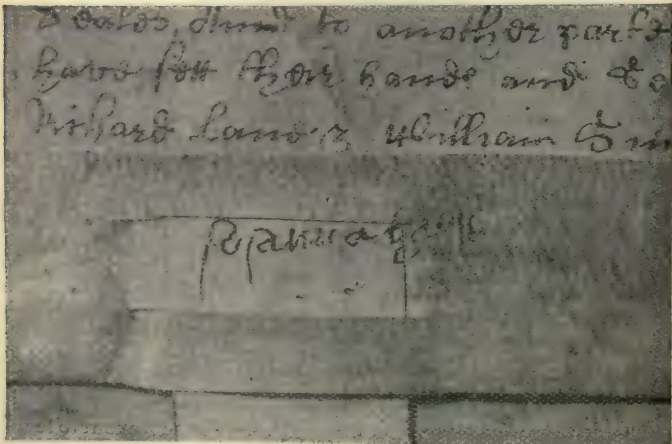 Seales, And to another parte
have sett their hands and Se
Richard Lane, William Sm